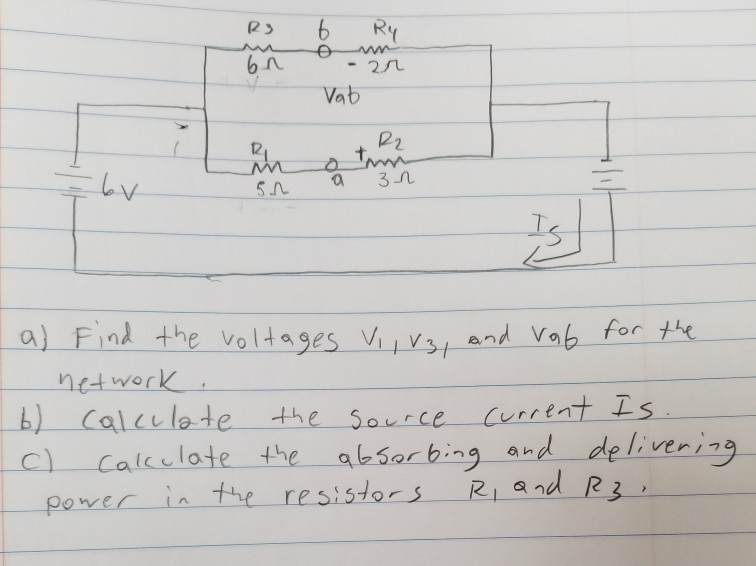 R3 b R4
6Ω - 2Ω
Vab
R1 + R2
5Ω a 3Ω
6V
Is
a) Find the voltages V1, V3, and Vab for the
network.
b) Calculate the source current Is.
c) Calculate the absorbing and delivering
power in the resistors R1 and R3.